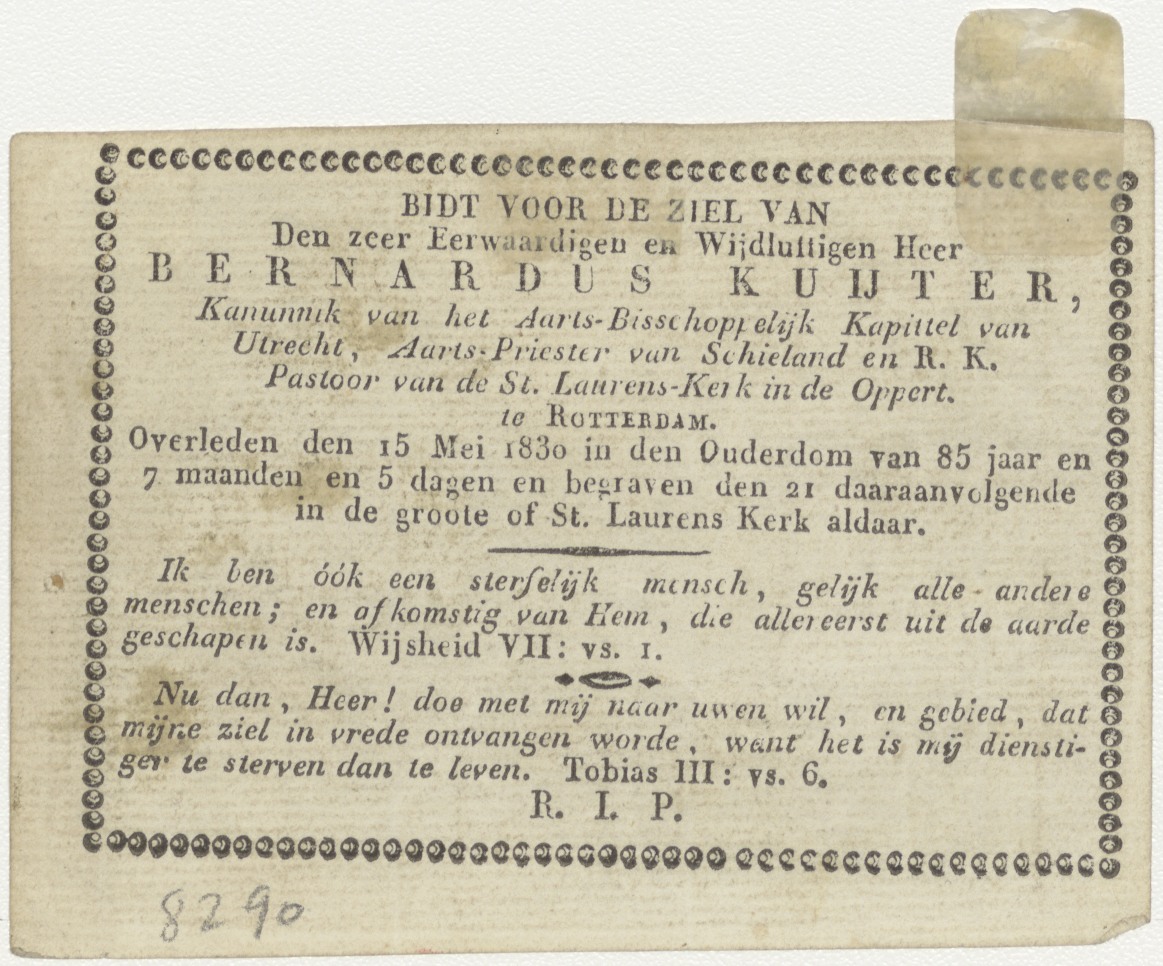 BIDT VOOR DE ZIEL VAN
Den zeer Eerwaardigen en Wijdluftigen Heer
BERNARDUS KUIJTER,
Kanunnik van het Aarts-Bisschoppelijk Kapittel van
Utrecht, Aarts-Priester van Schieland en R. K.
Pastoor van de St. Laurens-Kerk in de Oppert.
te ROTTERDAM.
Overleden den 15 Mei 1830 in den Ouderdom van 85 jaar en
7 maanden en 5 dagen en begraven den 21 daaraanvolgende
in de groote of St. Laurens Kerk aldaar.
Ik ben óók een sterfelijk mensch, gelijk alle andere
menschen; en afkomstig van Hem, die allereerst uit de aarde
geschapen is. Wijsheid VII: vs. 1.
Nu dan, Heer! doe met mij naar uwen wil, en gebied, dat
mijne ziel in vrede ontvangen worde, want het is mij diensti-
ger te sterven dan te leven. Tobias III: vs. 6.
R. I. P.
8290